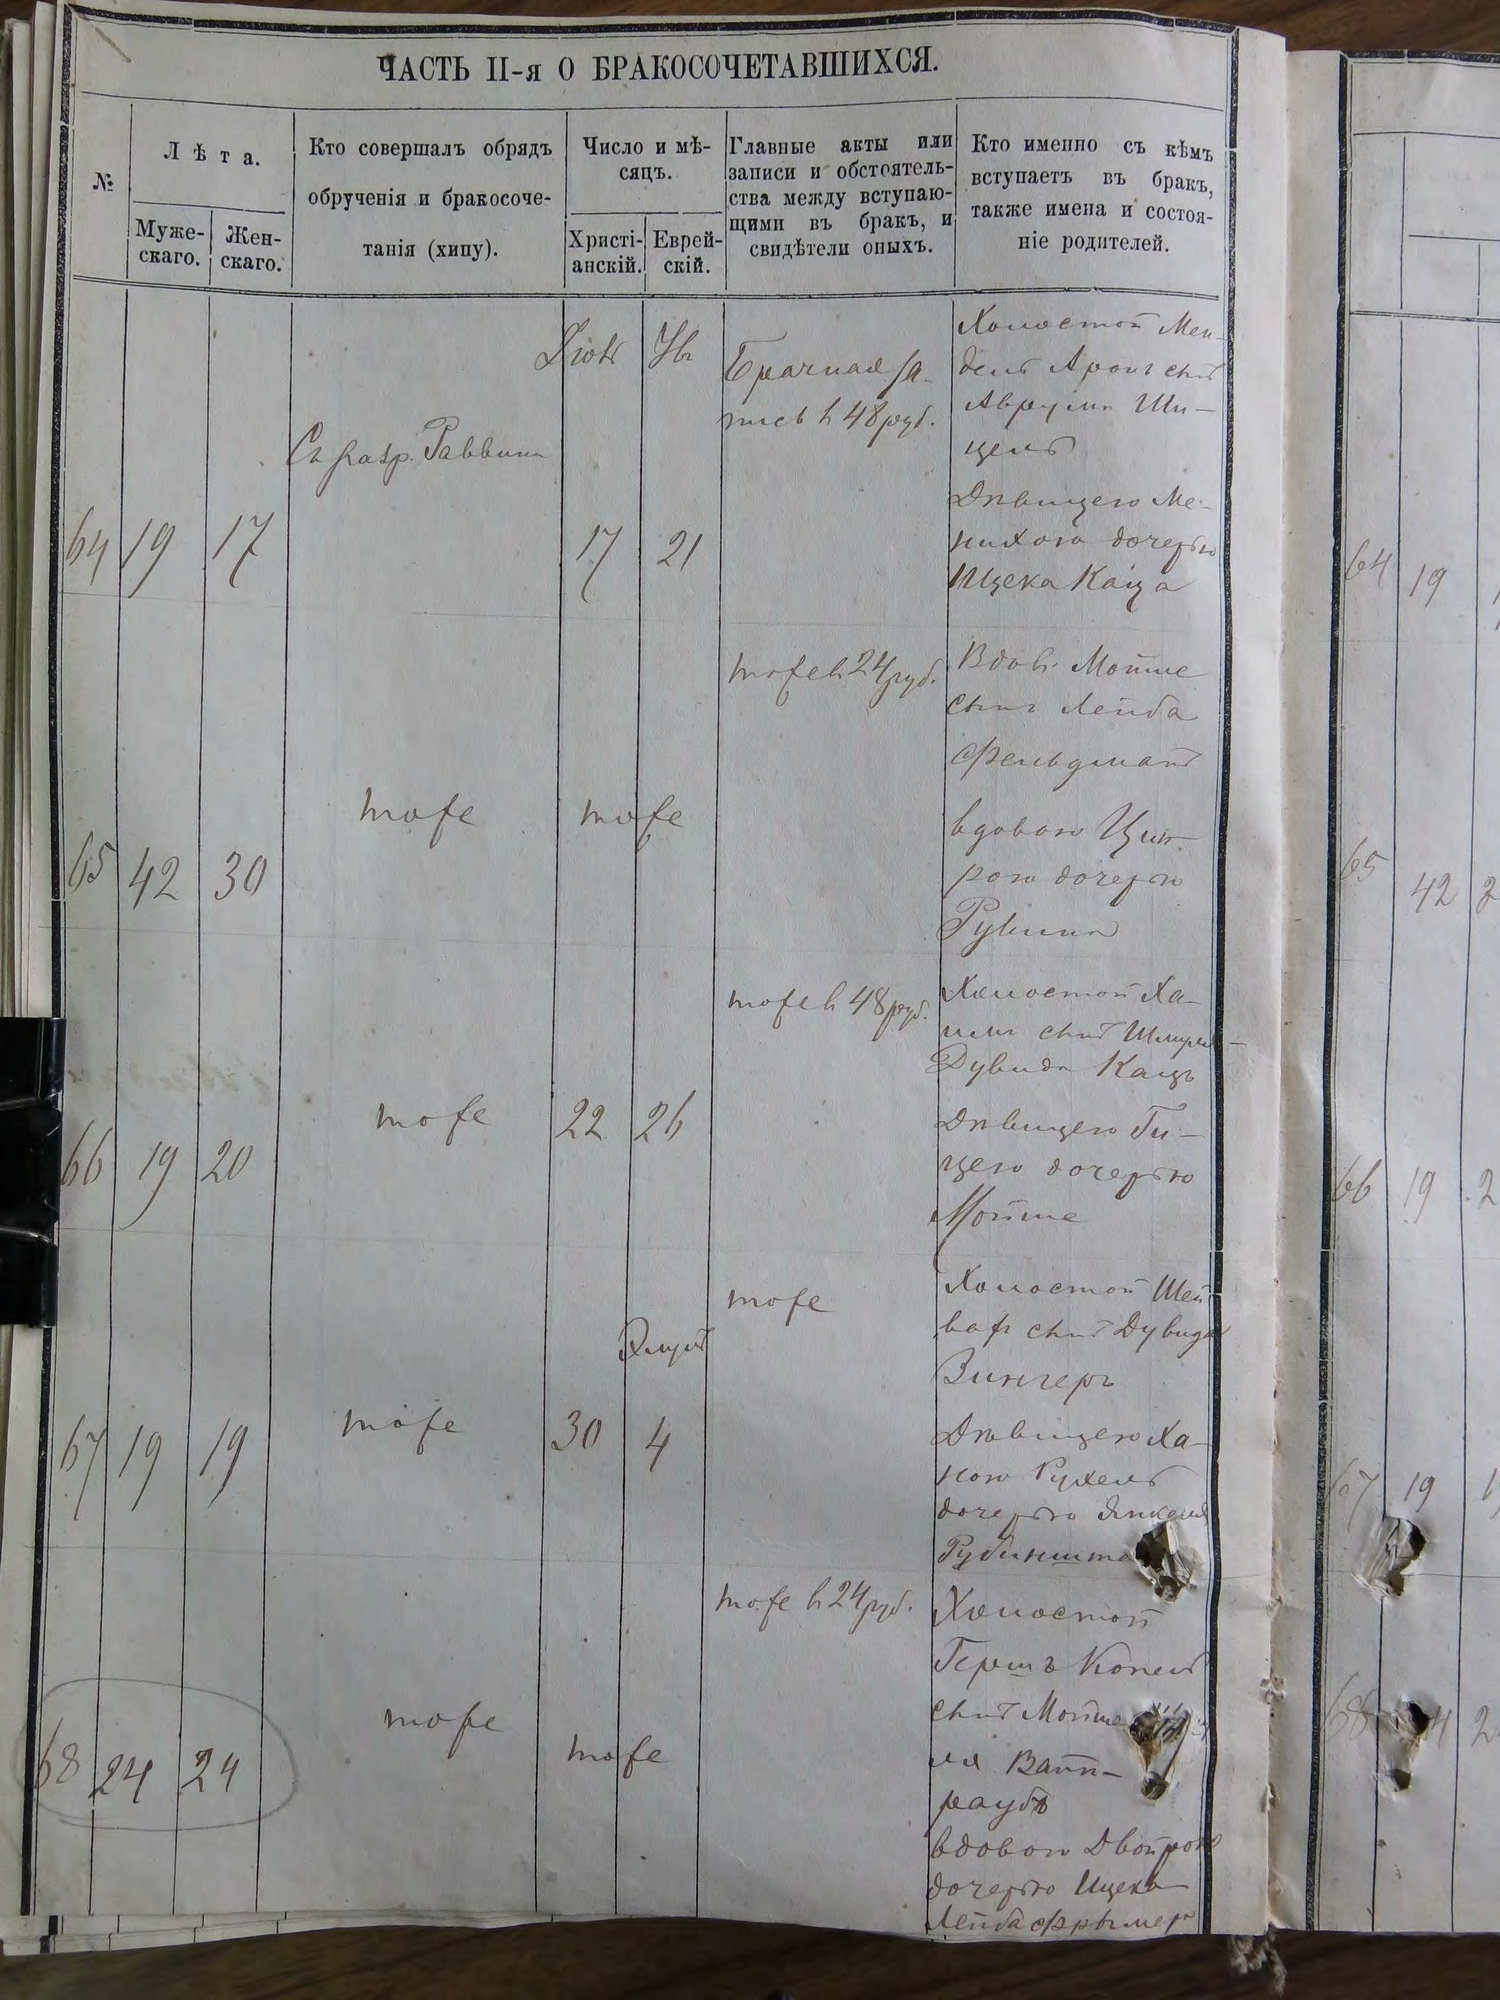 ЧАСТЬ II-я О БРАКОСОЧЕТАВШИХСЯ.
№
Лѣта.
Муже-
скаго.
Жен-
скаго.
Кто совершалъ обрядъ
обрученія и бракосоче-
танія (хипу).
Число и мѣ-
сяцъ.
Христі-
анскій.
Еврей-
скій.
Главные акты или
записи и обстоятель-
ства между вступаю-
щими въ бракъ, и
свидѣтели оныхъ.
Кто именно съ кѣмъ
вступаетъ въ бракъ,
также имена и состоя-
ніе родителей.
64
19
17
Съ разр. Раввина
17
21
Брачная за-
пись в 48 руб.
Холостой Мен-
дель Аронъ сынъ
Аврума Ши-
цель
Дѣвицею Ме-
нихою дочерью
Ицека Каца
65
42
30
тоже
тоже
тоже в 24 руб.
Вдов. Мойше
сынъ Лейба
Фельдманъ
вдовою Цип-
рою дочерью
Рувина
66
19
20
тоже
22
26
тоже в 48 руб.
Холостой Ха-
имъ сынъ Шмуля-
Дувида Кацъ
Дѣвицею Ги-
цею дочерью
Мойше
67
19
19
тоже
30
4
тоже
Холостой
сынъ Дувида
Зингеръ
Дѣвицею Ха-
ною Рухель
дочерью Янкеля
Рубинште
68
24
24
тоже
тоже
тоже в 24 руб.
Холостой
Гершъ Копель
сынъ Мойше
ля Вайн-
раубъ
вдовою Двойрою
дочерью Ицека
Лейба
64
19
65
42
66
19
2
67
19
68
4
2